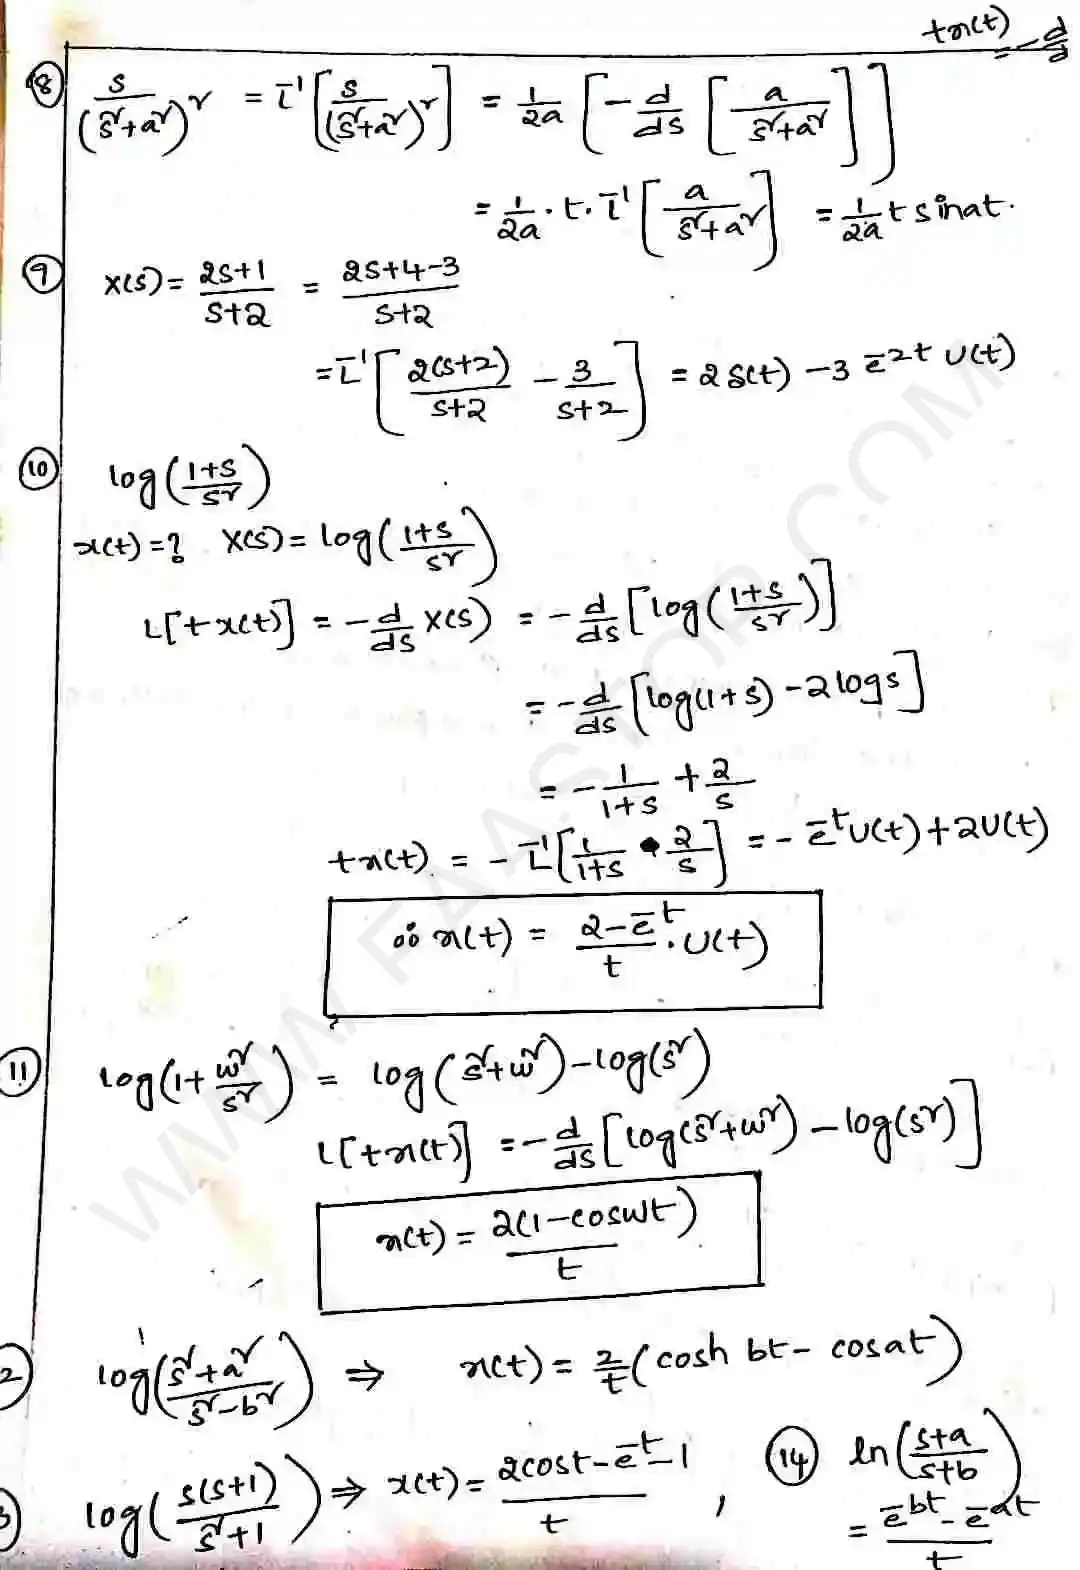 tx(t) = -d/d
⑧ s/(s²+a²)² = L⁻¹[s/(s²+a²)²] = 1/2a [-d/ds [a/(s²+a²)]]
= 1/2a · t · L⁻¹[a/(s²+a²)] = 1/2a t sinat.
⑨ X(s) = (2s+1)/(s+2) = (2s+4-3)/(s+2)
= L⁻¹[2(s+2)/(s+2) - 3/(s+2)] = 2δ(t) - 3 e⁻²ᵗ U(t)
⑩ log((1+s)/s²)
x(t) = ? X(s) = log((1+s)/s²)
L[t x(t)] = -d/ds X(s) = -d/ds [log((1+s)/s²)]
= -d/ds [log(1+s) - 2logs]
= -1/(1+s) + 2/s
tx(t) = -L⁻¹[1/(1+s) • 2/s] = -e⁻ᵗU(t) + 2U(t)
∴ x(t) = (2-e⁻ᵗ)/t · U(t)
⑪ log(1+w²/s²) = log(s²+w²) - log(s²)
L[tx(t)] = -d/ds [log(s²+w²) - log(s²)]
x(t) = 2(1-coswt)/t
2 log((s²+a²)/(s²-b²)) ⇒ x(t) = 2/t (cosh bt - cosat)
3 log(s(s+1)/(s²+1)) ⇒ x(t) = (2cost - e⁻ᵗ - 1)/t , ⑭ ln((s+a)/(s+b))
= (e⁻ᵇᵗ - e⁻ᵃᵗ)/t
WWW.FAASTOP.COM